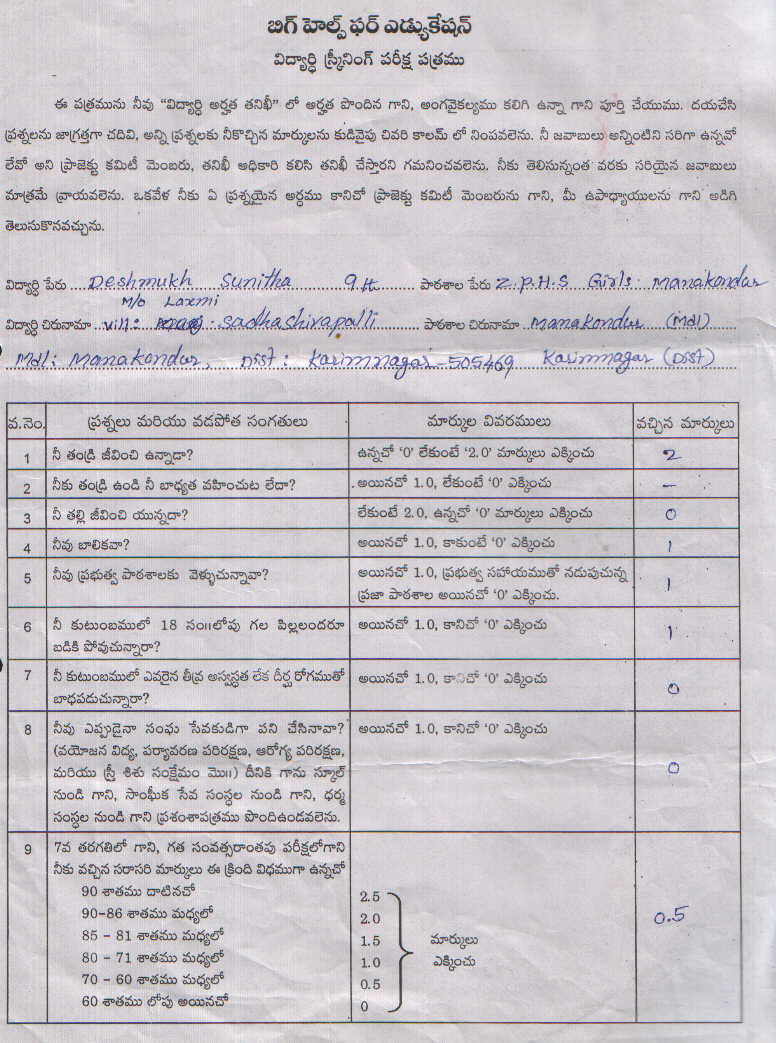 బిగ్ హెల్ప్ ఫర్ ఎడ్యుకేషన్
విద్యార్థి స్క్రీనింగ్ పరీక్ష పత్రము
ఈ పత్రమును నీవు "విద్యార్థి అర్హత తనిఖీ" లో అర్హత పొందిన గాని, అంగవైకల్యము కలిగి ఉన్నా గాని పూర్తి చేయుము. దయచేసి
ప్రశ్నలను జాగ్రత్తగా చదివి, అన్ని ప్రశ్నలకు నీకొచ్చిన మార్కులను కుడివైపు చివరి కాలమ్ లో నింపవలెను. నీ జవాబులు అన్నింటిని సరిగా ఉన్నవో
లేవో అని ప్రాజెక్టు కమిటీ మెంబరు, తనిఖీ అధికారి కలిసి తనిఖీ చేస్తారని గమనించవలెను. నీకు తెలిసున్నంత వరకు సరియైన జవాబులు
మాత్రమే వ్రాయవలెను. ఒకవేళ నీకు ఏ ప్రశ్నయైన అర్థము కానిచో ప్రాజెక్టు కమిటీ మెంబరును గాని, మీ ఉపాధ్యాయులను గాని అడిగి
తెలుసుకొనవచ్చును.
విద్యార్థి పేరు Deshmukh Sunitha 9th పాఠశాల పేరు Z.P.H.S Girls. Manakondur
m/o Laxmi
విద్యార్థి చిరునామా vill: Sadhashivapalli పాఠశాల చిరునామా Manakondur (Mdl)
Mdl: Manakondur, Dist: Karimnagar-505469 Karimnagar (Dist)
వ.నెం. ప్రశ్నలు మరియు వడపోత సంగతులు మార్కుల వివరములు వచ్చిన మార్కులు
1 నీ తండ్రి జీవించి ఉన్నాడా? ఉన్నచో '0' లేకుంటే '2.0' మార్కులు ఎక్కించు 2
2 నీకు తండ్రి ఉండి నీ బాధ్యత వహించుట లేదా? అయినచో 1.0, లేకుంటే '0' ఎక్కించు –
3 నీ తల్లి జీవించి యున్నదా? లేకుంటే 2.0, ఉన్నచో '0' మార్కులు ఎక్కించు 0
4 నీవు బాలికవా? అయినచో 1.0, కాకుంటే '0' ఎక్కించు 1
5 నీవు ప్రభుత్వ పాఠశాలకు వెళ్ళుచున్నావా? అయినచో 1.0, ప్రభుత్వ సహాయముతో నడుపుచున్న 1
ప్రజా పాఠశాల అయినచో '0' ఎక్కించు.
6 నీ కుటుంబములో 18 సం॥లోపు గల పిల్లలందరూ అయినచో 1.0, కానిచో '0' ఎక్కించు 1
బడికి పోవుచున్నారా?
7 నీ కుటుంబములో ఎవరైన తీవ్ర అస్వస్థత లేక దీర్ఘ రోగముతో అయినచో 1.0, కానిచో '0' ఎక్కించు 0
బాధపడుచున్నారా?
8 నీవు ఎప్పుడైనా సంఘ సేవకుడిగా పని చేసినావా? అయినచో 1.0, కానిచో '0' ఎక్కించు
(వయోజన విద్య, పర్యావరణ పరిరక్షణ, ఆరోగ్య పరిరక్షణ,
మరియు స్త్రీ శిశు సంక్షేమం మొ॥) దీనికి గాను స్కూల్ 0
నుండి గాని, సాంఘీక సేవ సంస్థల నుండి గాని, ధర్మ
సంస్థల నుండి గాని ప్రశంశాపత్రము పొందిఉండవలెను.
9 7వ తరగతిలో గాని, గత సంవత్సరాంతపు పరీక్షలోగాని
నీకు వచ్చిన సరాసరి మార్కులు ఈ క్రింది విధముగా ఉన్నచో
90 శాతము దాటినచో 2.5
90-86 శాతము మధ్యలో 2.0 0.5
85 - 81 శాతము మధ్యలో 1.5 మార్కులు
80 - 71 శాతము మధ్యలో 1.0 ఎక్కించు
70 - 60 శాతము మధ్యలో 0.5
60 శాతము లోపు అయినచో 0